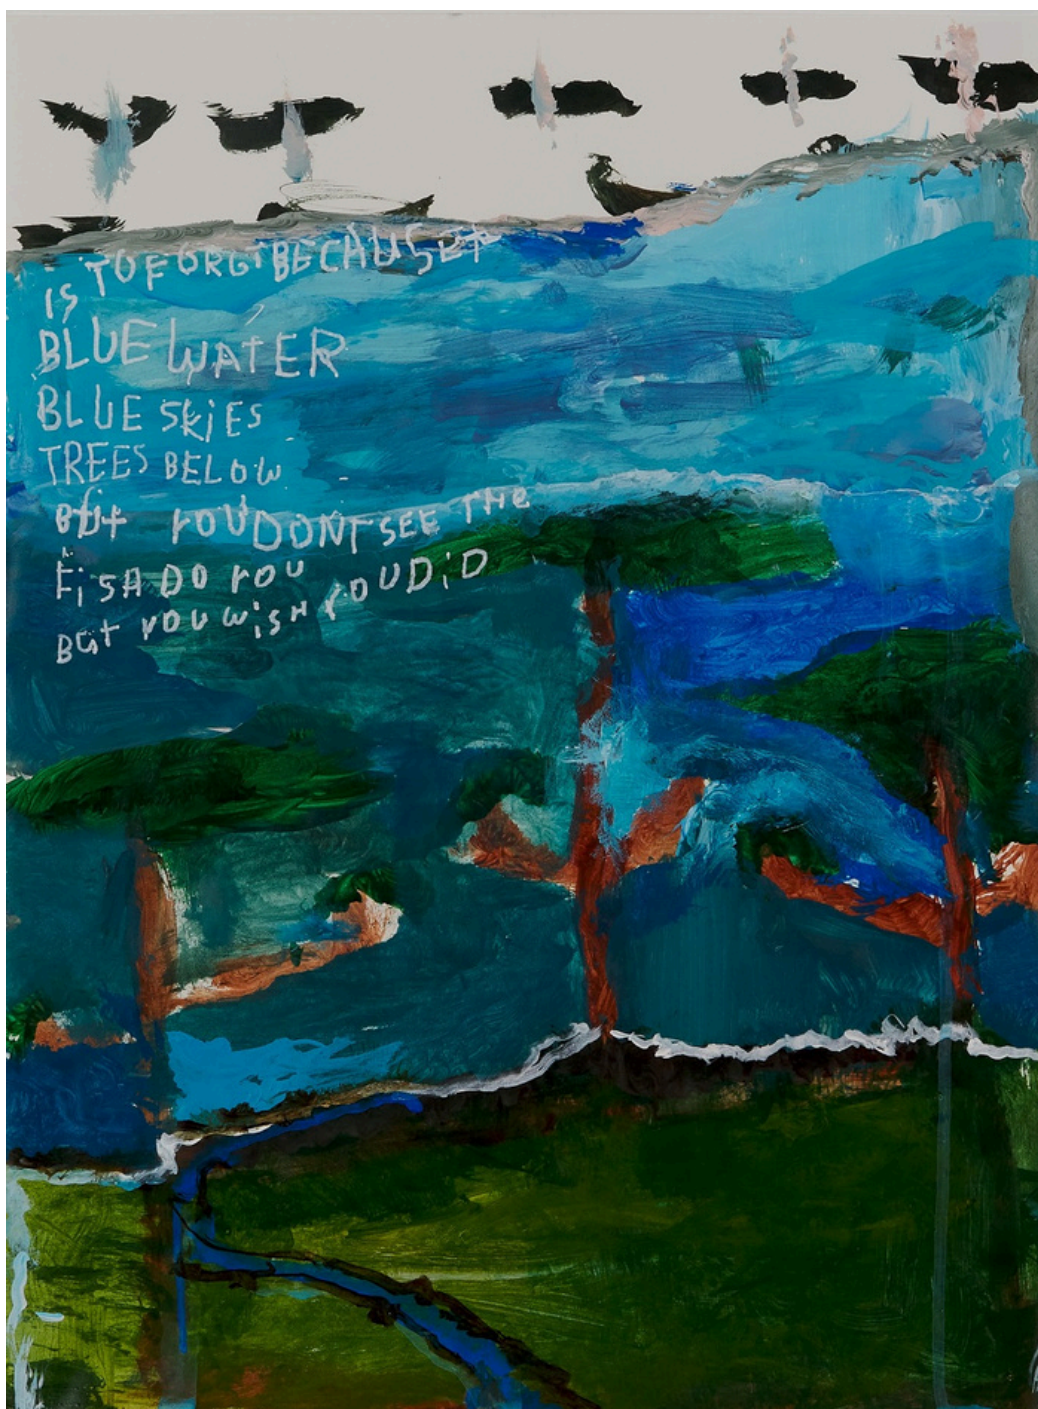 is TOFORGiBECAUSEit
is
BLUE WATER
BLUE SKiES
TREES BELOW
BUt YOUDONTSEE THE
FiSHDO YOU
BUt YOUWiSHYOUDiD